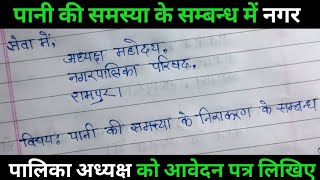 पानी की समस्या के सम्बन्ध में नगर
सेवा में,
अध्यक्ष महोदय,
नगरपालिका परिषद,
रामपुर।
विषय: पानी की समस्या के निराकरण के सम्बन्ध
पालिका अध्यक्ष को आवेदन पत्र लिखिए